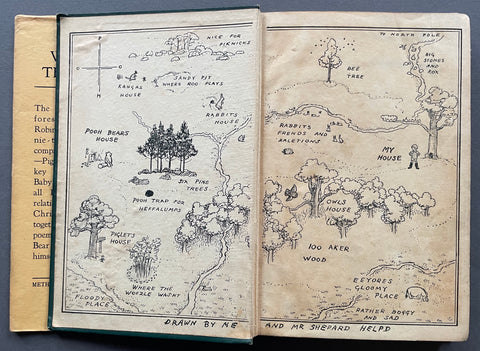 W
TH
The
fores
Robin
nie-t
comp
—Pig
key
Baby
all
relati
Chris
toget
poem
Bear
him
METH
NICE FOR
PIKNICKS
KANGAS
HOUSE
SANDY PIT
WHERE ROO PLAYS
RABBITS
HOUSE
POOH BEARS
HOUSE
SIX PINE
TREES
POOH TRAP FOR
HEFFALUMPS
PIGLETS
HOUSE
WHERE THE
WOOZLE WASNT
FLOODY
PLACE
DRAWN BY ME
TO NORTH POLE
BIG
STONES
AND
ROX
BEE
TREE
RABBITS
FRENDS AND
RALETIONS
MY
HOUSE
OWLS
HOUSE
100 AKER
WOOD
EEYORES
GLOOMY
PLACE
RATHER BOGGY
AND SAD
AND MR SHEPARD HELPD